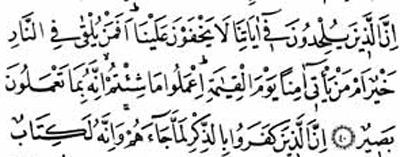 اِنَّ الَّذٖينَ يُلْحِدُونَ فٖٓى اٰيَاتِنَا لَا يَخْفَوْنَ عَلَيْنَاؕ اَفَمَنْ يُلْقٰى فِى النَّارِ
خَيْرٌ اَمْ مَنْ يَأْتٖٓى اٰمِنًا يَوْمَ الْقِيٰمَةِؕ اِعْمَلُوا مَا شِئْتُمْۙ اِنَّهُ بِمَا تَعْمَلُونَ
بَصٖيرٌ ﴿٤٠﴾ اِنَّ الَّذٖينَ كَفَرُوا بِالذِّكْرِ لَمَّا جَٓاءَهُمْۚ وَاِنَّهُ لَكِتَابٌ